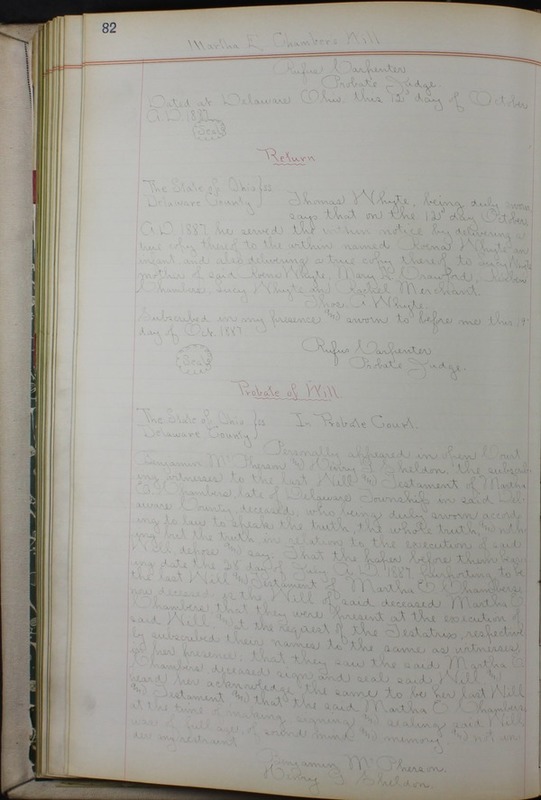 82
Martha E. Chambers Will
Rufus Carpenter
Probate Judge
Dated at Delaware Ohio this 12" day of October
A.D. 1887
Seal
Return
The State of Ohio } ss
Delaware County } Thomas Whyte, being duly sworn
says that on the 12" day October
A.D. 1887 he served the within notice by delivering a
true copy thereof to the within named Whyte an
infant and also delivering a true copy thereof to
mother of said Whyte, Mary R. Crawford,
Chambers, Lucy Whyte and Rachel Merchant.
Thos. C. Whyte
Subscribed in my presence and sworn to before me this
day of Oct. 1887
Rufus Carpenter
Seal
Probate Judge.
Probate of Will
The State of Ohio } ss In Probate Court.
Delaware County }
Personally appeared in open Court
Benjamin McPherson and Henry J. Sheldon, the subscrib
ing witnesses to the last Will and Testament of Martha
E. Chambers, late of Delaware Township in said Del
aware County, deceased, who being duly sworn accord
ing to law to speak the truth, the whole truth, and noth
ing but the truth, in relation to the execution of said
Will, depose and say: That the paper before them bear
ing date the 28" day of A.D. 1887, purporting to be
the last Will and Testament of Martha E. Chambers
now deceased, is the Will of said deceased Martha E.
Chambers, that they were present at the execution of
said Will, and at the request of the Testatrix, respective
ly subscribed their names to the same as witnesses
in her presence, that they saw the said Martha E.
Chambers deceased sign and seal said Will and
heard her acknowledge the same to be her last Will
and Testament and that the said Martha E. Chambers
at the time of making, signing and sealing said Will
was of full age, of sound mind and memory and not un
der any restraint.
Benjamin McPherson
Henry J. Sheldon.